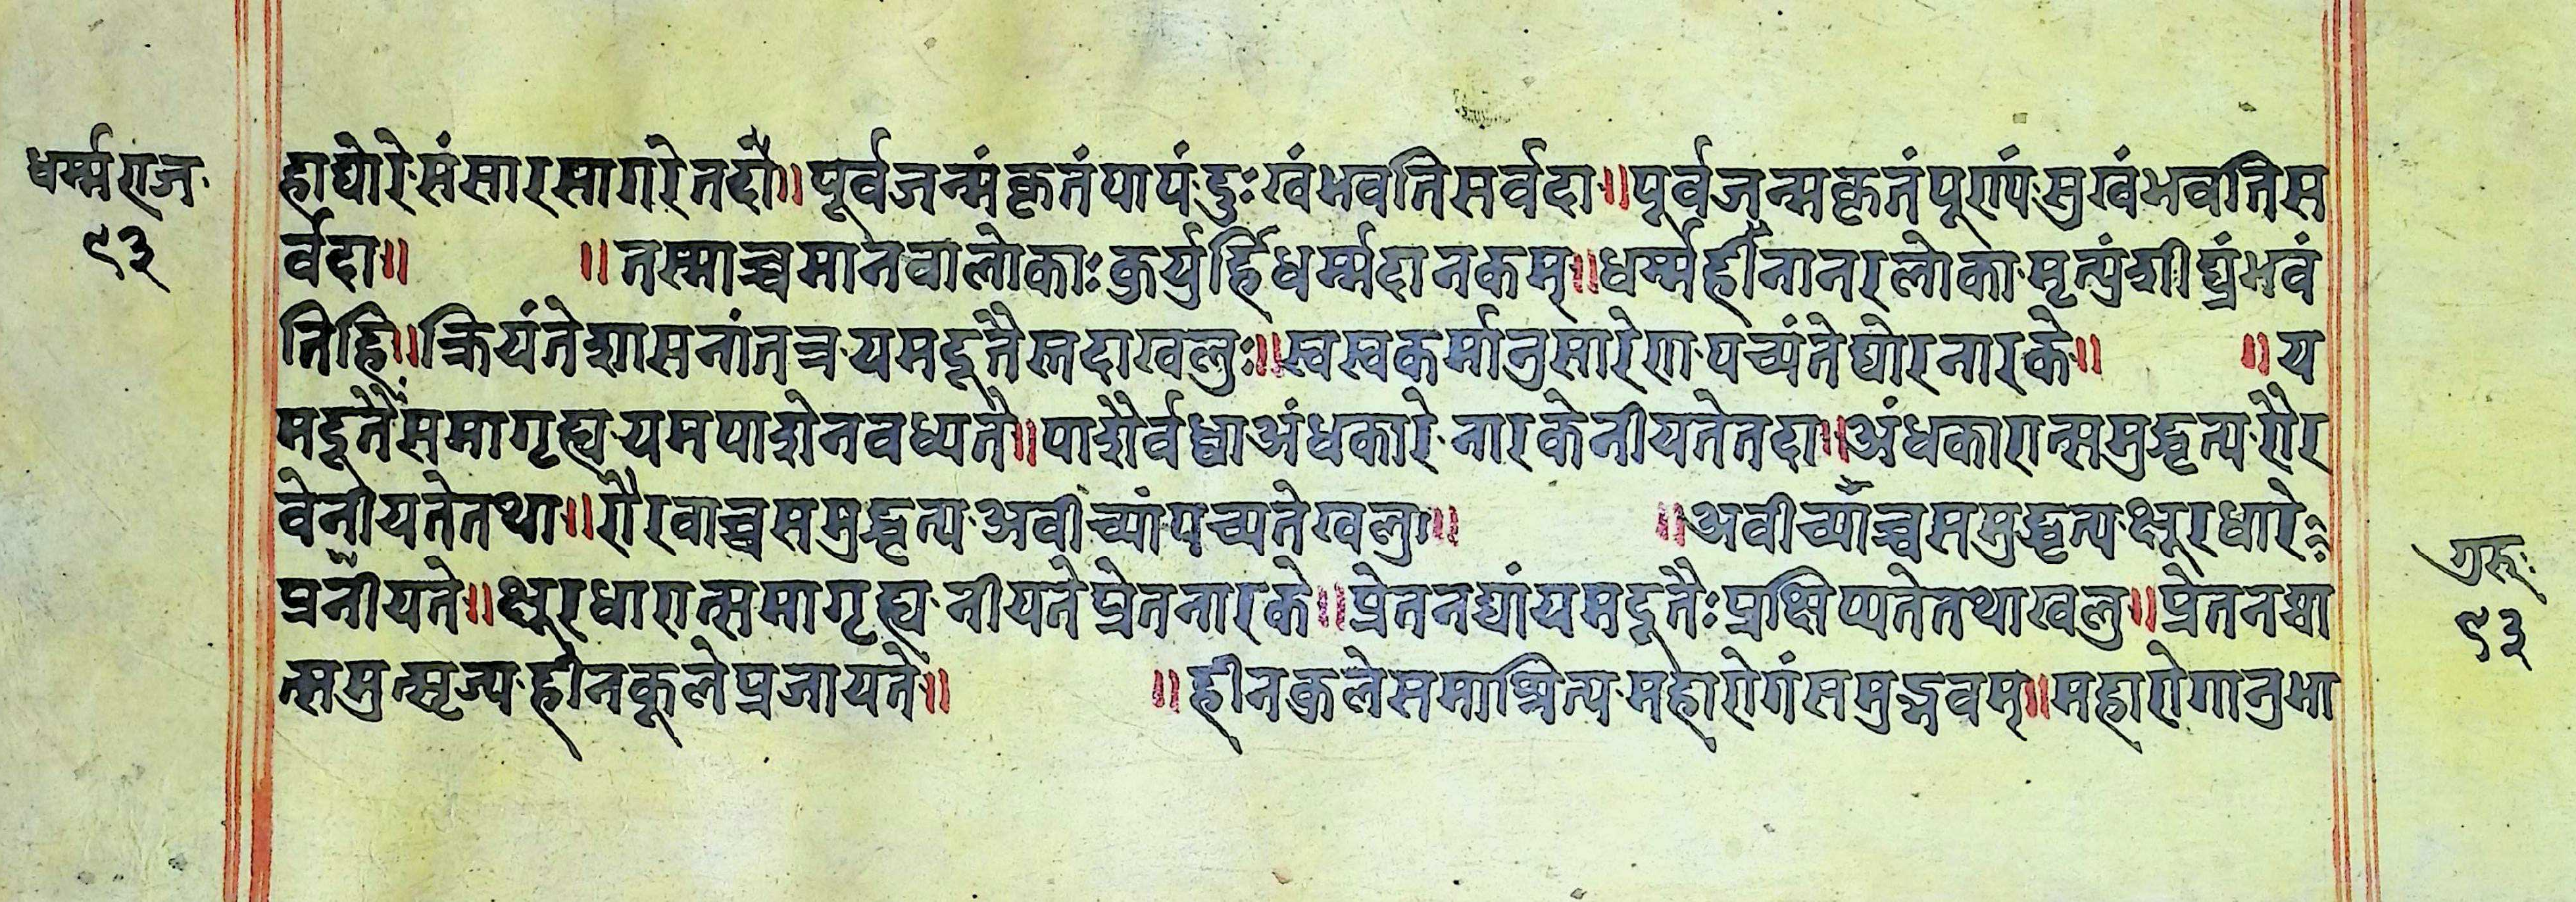 धर्म्मराज
९३
हाघोरे संसारसागरे नदौ॥पूर्वजन्मंकृतंपापं दुःखंभवतिसर्वदा॥पूर्वजन्मकृतंपूरापं सुखंभवतिस
र्वदा॥ ॥तस्माच्चमानवालोकाः कुर्युर्हिधर्म्मदानकम्॥धर्म्महीनानरलोका मृत्युंशीघ्रंभवं
तिहि॥क्रियंतेशासनांतत्र यमदूतैस्तदाखलुः॥स्वस्वकर्मानुसारेण पच्यंतेघोरनारके॥ ॥य
मदूतैःसमागृह्य यमपाशेनवध्यते॥पाशैर्वध्वाअंधकारे नारकेनीयतेतदा॥अंधकारात्समुद्धृत्य रौर
वेनीयतेतथा॥रौरवाच्चसमुद्धृत्य अवीच्यांपच्यतेखलु॥ ॥अवीच्याँच्चसमुद्धृत्य क्षूरधारे
प्रनीयते॥क्षूरधारात्समागृह्य नीयतेप्रेतनारके॥प्रेतनद्यांयमदूतैःप्रक्षिप्यतेतथाखलु॥प्रेतनद्या
त्समुत्सृज्य हीनकूलेप्रजायते॥ ॥हीनकुलेसमाश्रित्य महारोगंसमुद्भवम्॥महारोगानुभा
गुरुः
९३